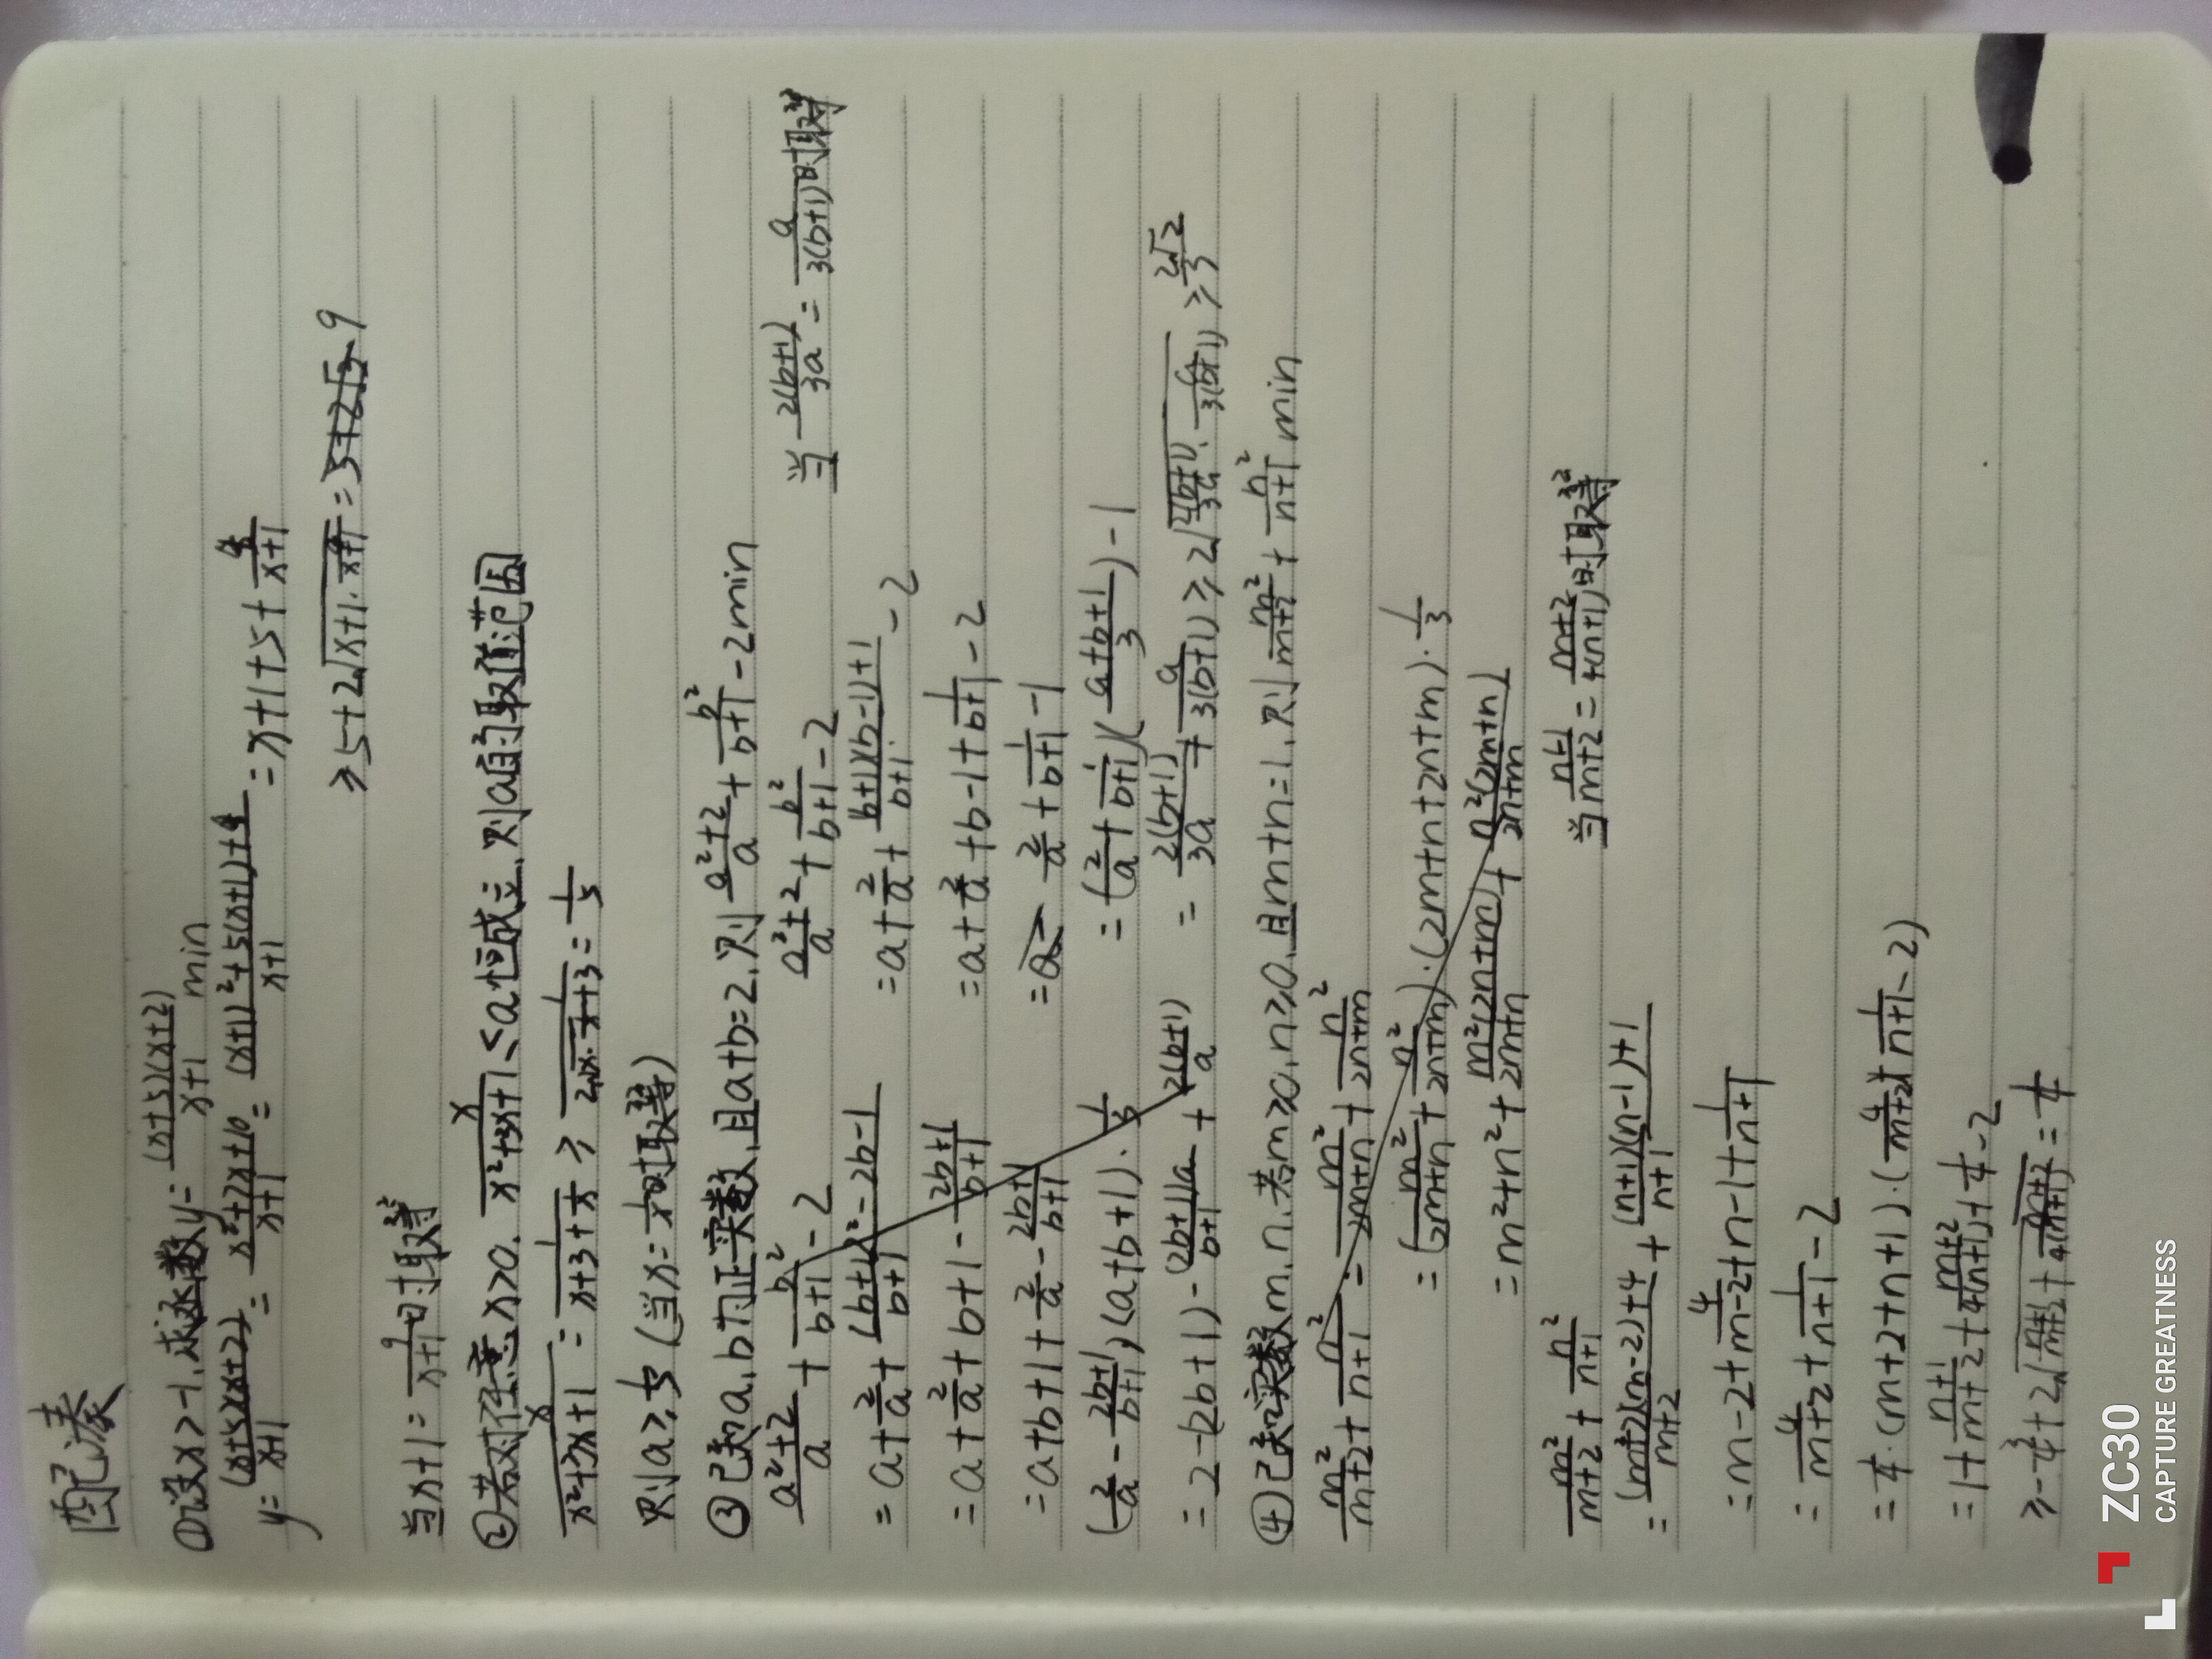 配凑
①设x>-1,求函数y=\frac{(x+5)(x+2)}{x+1} min
y=\frac{(x+5)(x+2)}{x+1}=\frac{x²+7x+10}{x+1}=\frac{(x+1)²+5(x+1)+4}{x+1}=x+1+5+\frac{4}{x+1}
≥5+2\sqrt{x+1·\frac{4}{x+1}}=9
当x+1=\frac{4}{x+1}时取等
②若对任意x>0,\frac{x}{x²+3x+1}≤a恒成立,则a的取值范围
\frac{x}{x²+3x+1}=\frac{1}{x+3+\frac{1}{x}}≥\frac{1}{2\sqrt{x·\frac{1}{x}}+3}=\frac{1}{5}
则a≥\frac{1}{5}(当x=\frac{1}{x}时取等)
③已知a,b为正实数,且a+b=2,则\frac{a²+2}{a}+\frac{b²}{b+1}-2min
\frac{a²+2}{a}+\frac{b²}{b+1}-2
=a+\frac{2}{a}+\frac{(b+1)²-2b-1}{b+1}
=a+\frac{2}{a}+b+1-\frac{2b+1}{b+1}
=a+b+1+\frac{2}{a}-\frac{2b+1}{b+1}
(\frac{2}{a}-\frac{2b+1}{b+1})(a+b+1)·\frac{1}{3}
=2-(2b+1)-\frac{(2b+1)a}{b+1}+\frac{2(b+1)}{a}
\frac{a²+2}{a}+\frac{b²}{b+1}-2
=a+\frac{2}{a}+\frac{(b+1)(b-1)+1}{b+1}-2
=a+\frac{2}{a}+b-1+\frac{1}{b+1}-2
=\frac{2}{a}+\frac{1}{b+1}-1
=(\frac{2}{a}+\frac{1}{b+1})(\frac{a+b+1}{3})-1
=\frac{2(b+1)}{3a}+\frac{a}{3(b+1)}≥2\sqrt{\frac{2(b+1)}{3a}·\frac{a}{3(b+1)}}≥\frac{2\sqrt{2}}{3}
当\frac{2(b+1)}{3a}=\frac{a}{3(b+1)}时取等
④已知实数m,n,若m≥0,n≥0,且m+n=1,则\frac{m²}{m+2}+\frac{n²}{n+1}min
\frac{m²}{m+2}+\frac{n²}{n+1}=\frac{m²}{2m+n}+\frac{n²}{2n+m}
=(\frac{m²}{2m+n}+\frac{n²}{2n+m})·(2m+n+2n+m)·\frac{1}{3}
=m²+n²+\frac{m²(2n+m)}{2m+n}+\frac{n²(2m+n)}{2n+m}
\frac{m²}{m+2}+\frac{n²}{n+1}
=\frac{(m+2)(m-2)+4}{m+2}+\frac{(n+1)(n-1)+1}{n+1}
=m-2+\frac{4}{m+2}+n-1+\frac{1}{n+1}
=\frac{4}{m+2}+\frac{1}{n+1}-2
=\frac{1}{4}·(m+2+n+1)·(\frac{4}{m+2}+\frac{1}{n+1}-2)
=1+\frac{n+1}{m+2}+\frac{m+2}{4(n+1)}+\frac{1}{4}-2
≥-\frac{3}{4}+2\sqrt{\frac{n+1}{m+2}+\frac{m+2}{4(n+1)}}=\frac{1}{4}
当\frac{n+1}{m+2}=\frac{m+2}{4(n+1)}时取等
ZC30
CAPTURE GREATNESS